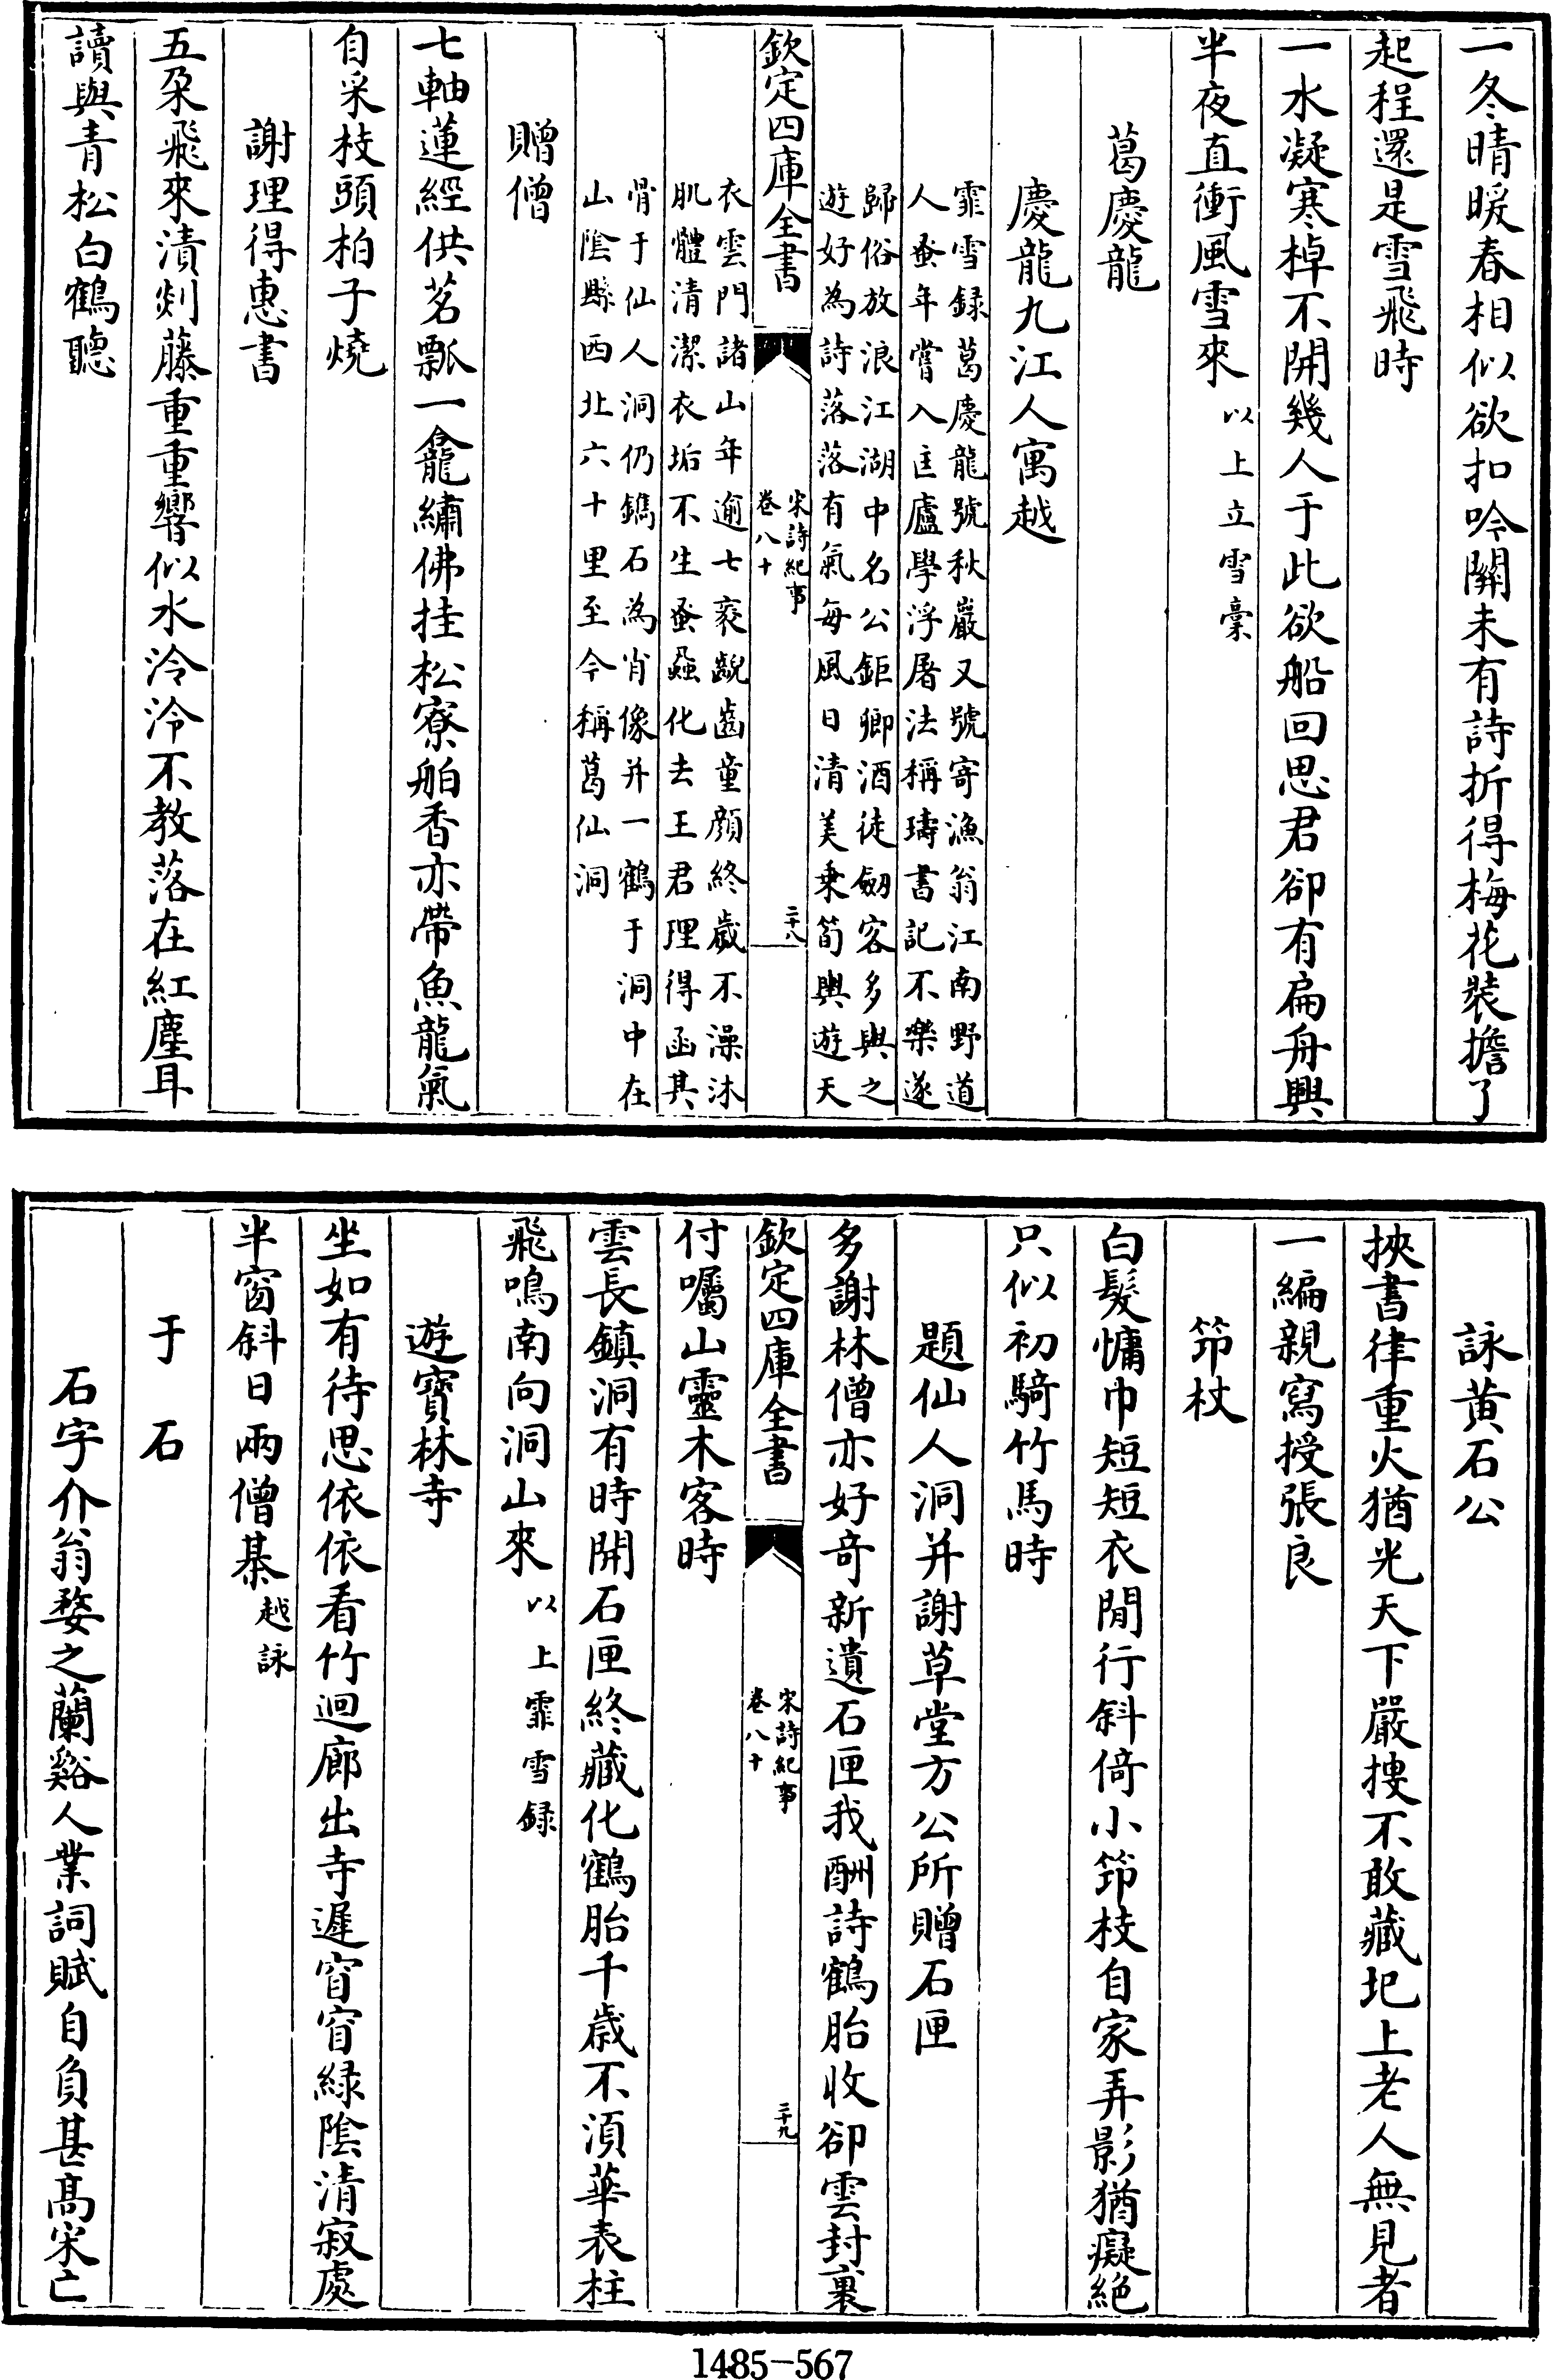 一冬晴暖春相似欲扣吟關未有詩折得梅花裝擔了
起程還是雪飛時
一水凝寒棹不開幾人于此欲船回思君卻有扁舟興
半夜直衝風雪來以上立雪稾
葛慶龍
慶龍九江人寓越
霏雪録葛慶龍號秋巖又號寄漁翁江南野道
人蚤年嘗入匡廬學浮屠法稱璹書記不樂遂
歸俗放浪江湖中名公鉅卿酒徒劒客多與之
遊好為詩落落有氣每風日清美乗筍輿遊天
欽定四庫全書
宋詩紀事
卷八十
二十八
衣雲門諸山年逾七袠齯齒童顔終歲不澡沐
肌體清潔衣垢不生蚤蝨化去王君理得函其
骨于仙人洞仍鐫石為肖像并一鶴于洞中在
山隂縣西北六十里至今稱葛仙洞
贈僧
七軸蓮經供茗瓢一龕繡佛挂松寮舶香亦帶魚龍氣
自采枝頭柏子燒
謝理得惠書
五朶飛來漬剡藤重重響似水泠泠不教落在紅塵耳
讀與青松白鶴聽
詠黄石公
挾書律重火猶光天下嚴搜不敢藏圯上老人無見者
一編親寫授張良
笻杖
白髮慵巾短短衣閒行斜倚小笻枝自家弄影猶癡絶
只似初騎竹馬時
題仙人洞并謝草堂方公所贈石匣
多謝林僧亦好奇新遺石匣我酬詩鶴胎收卻雲封裹
欽定四庫全書
宋詩紀事
卷八十
二十九
付囑山靈木客時
雲長鎮洞有時開石匣終藏化鶴胎千歲不湏華表柱
飛鳴南向洞山來以上霏雪録
遊寶林寺
坐如有待思依依看竹迴廊出寺遲窅窅緑隂清寂處
半窗斜日兩僧棊越詠
于石
石字介翁婺之蘭谿人業詞賦自負甚高宋亡
1485-567